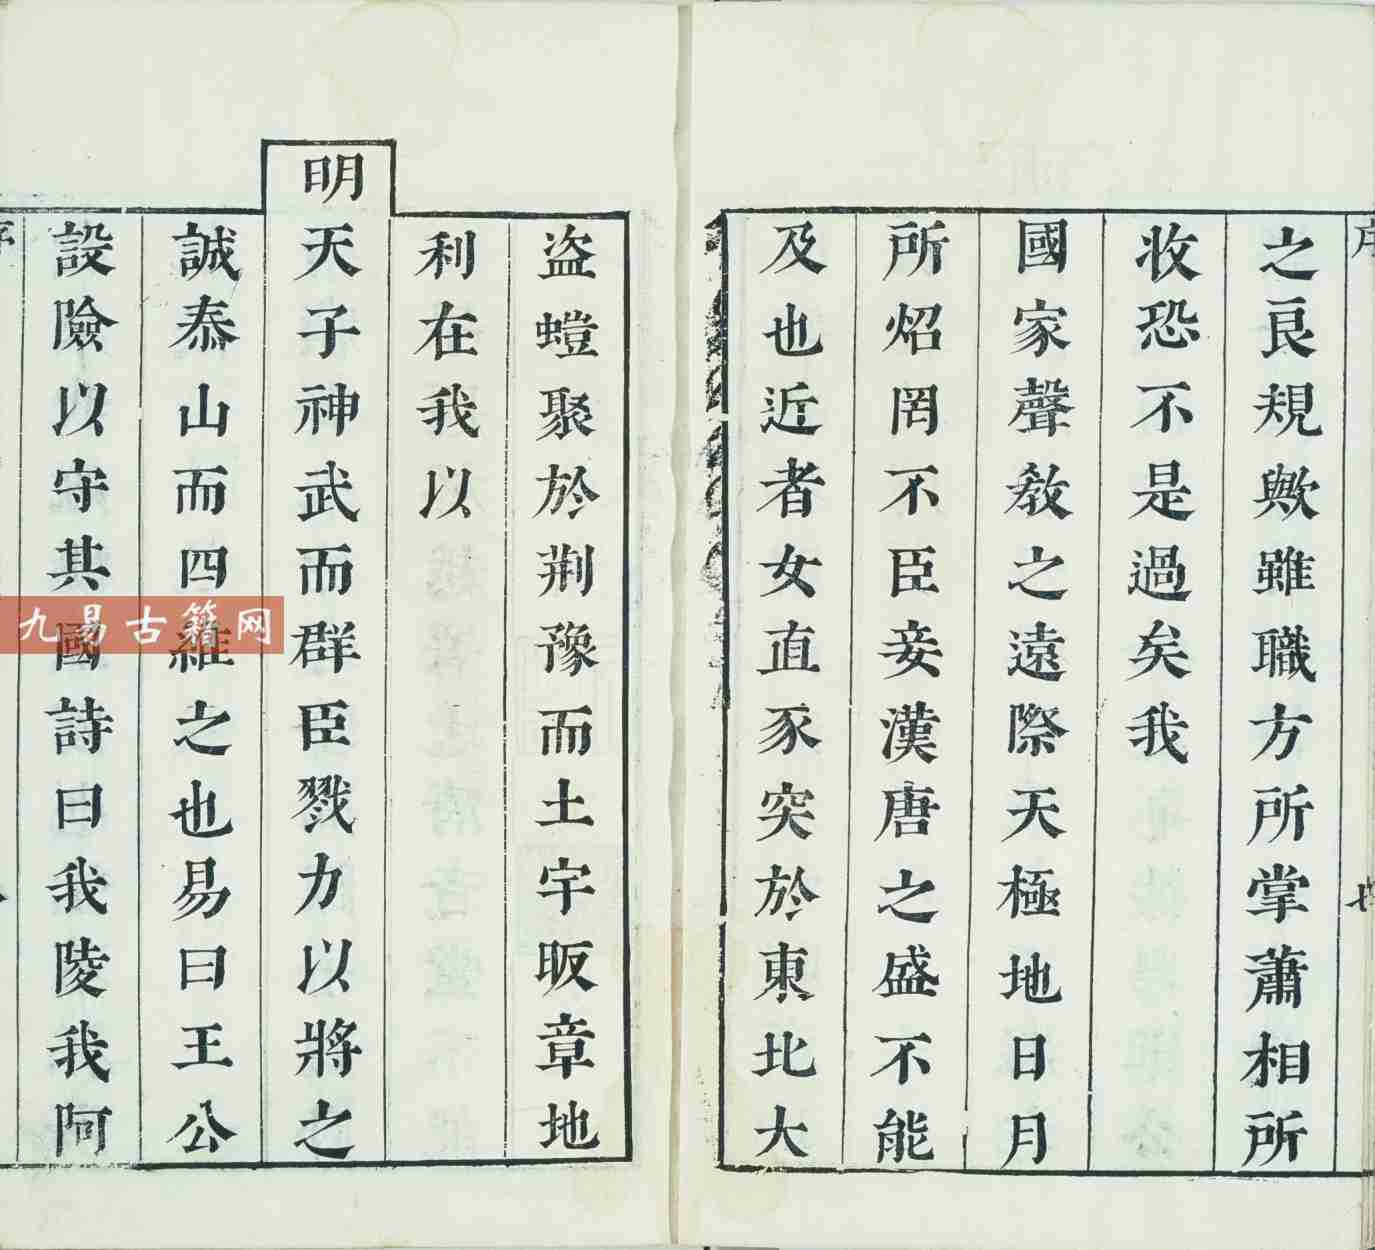 之良規歟雖職方所掌蕭相所
收恐不是過矣我
國家聲敎之遠際天極地日月
所炤罔不臣妾漢唐之盛不能
及也近者女直豕突於東北大
盗螘聚於荆豫而土宇昄章地
利在我以
明天子神武而群臣戮力以將之
誠泰山而四維之也易曰王公
設險以守其國詩曰我陵我阿
九易古籍网